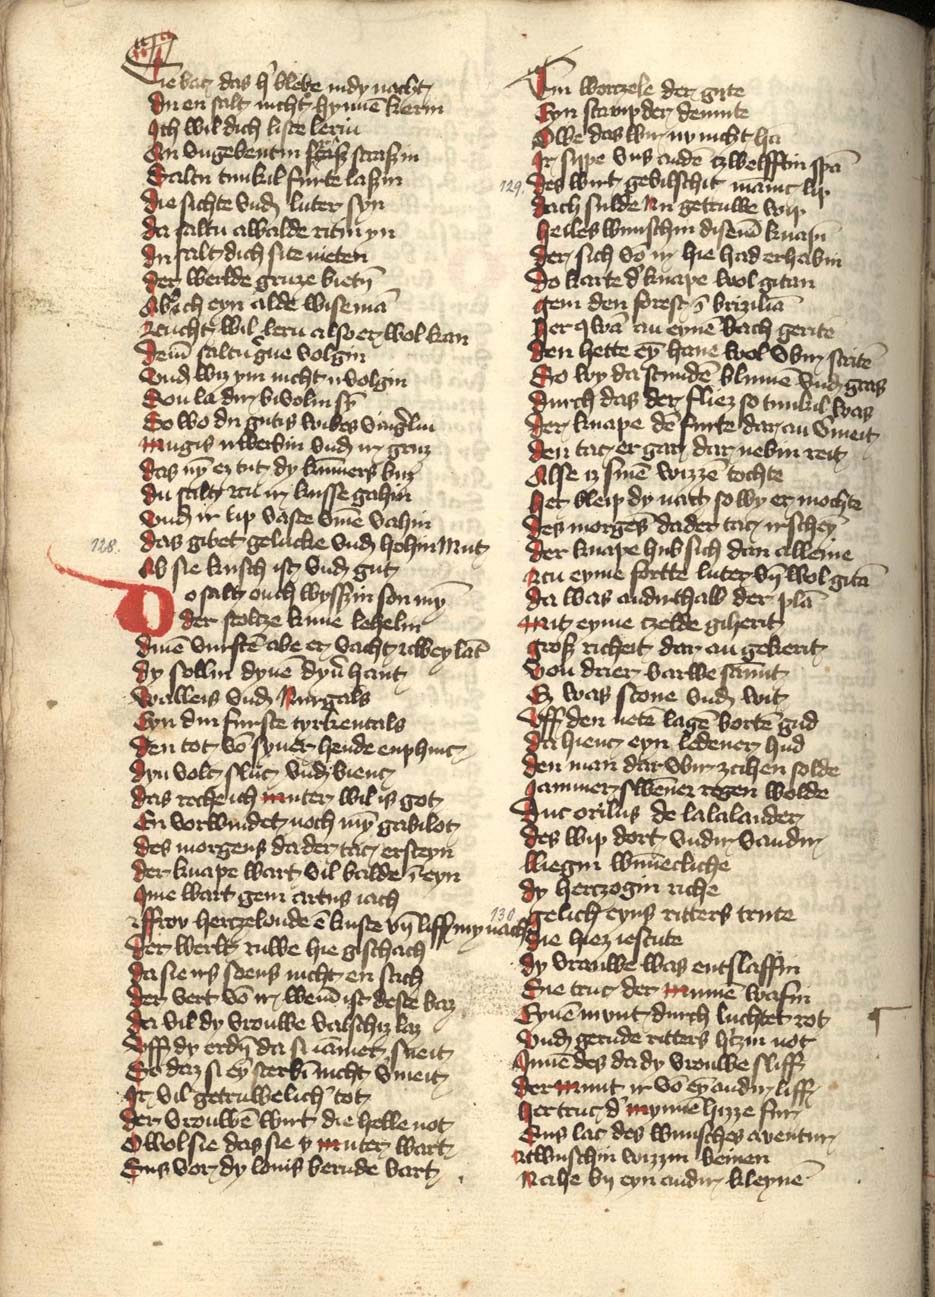 Sie bat das h' blebe in dy nacht
Du en salt nicht hynnē kerin
Ich wil dich liste lerin
An ungebentin straszin
Saltu tunkil furte laszin
die sichte vnd luter syn
da saltu alwalde ritin yn
du salt dich site nieten
der werlde gruze bietn
Ab dich eyn alde wise mā
zcucht wil lern also er wol kan
Deme saltu gerne volgin
vnd wiz ym nicht irvolgin
Son la dir bevolin sy
So wo du gutis wibes vingerlin
mugis irwerbin vnd ir gruz
das nym ez tut dy kummers buz
du salt zcu ir kusse gahin
vnd ir lip vaste vmē vahin
128.
das gibet gelucke vnd hohin mut
Ab sie kusch ist vnd gut
Do salt ouch wyssin son my
der stoltze kune lehelin
dinē vursten abe er vacht zcwey lant
dy sollin dynē dyner hant
walleis vnd Nurgals
Eyn din furste tyrkentals
den tot von syner hende enphinc
dyn volc sluc vnd vienc
das reche ich muter wil is got
En vorwundet noch my gabilot
des morgens da der tac ersteyn
der knape wart vil balde in eyn
Ime wart gein artus iach
ffrou hertzeloude en kuste vn liff my nach
der werlt ruwe hie gischach
da sie irs sones nicht en sach
der vert von ir weme ist deste baz
da vil dy vrouwe valschiz laz
vff dy erdin da si iamer sneit
So daz si ey sterbin nicht vmeit
Ir vil getruwelich' tot
der vrouwē wert die helle not
O wol sie das sie y muter wart
Sus vor dy lonis berude vart
Ein wortzele der gute
Eyn stamp der demute
Owe das wir ny nicht hā
Ir sippe vns anden eylfftin spā
129.
des wirt gevilschit manic lip
dach sulde nu getruwe wip
heiles wunschin disem knabin
der sich von ir hie had erhabin
do karte d' knape wol gitan
gein den forest in briziliā
her qwā an eynē bach gerite
den hette ey hane wol vbir scritē
So wy da stundē blumē vnd gras
durch das der fliez so tunkil was
der knape dē furte dar an vmeit
den tac er gar dar nebin reit
Alse iz sinē wizzē tochte
her bleip dy nacht so wy er mochte
des morgēs da der tac irschey
der knape hub sich dan alleine
zcu eyme fortte luter vn wol gitā
da was andirthalb der plā
mit eyme tzelde giherit
grosz richeit dar an gekerit
von drier varwe samit
Ez was scone vnd wit
vff den netē lagē bortē gud
da hienc eyn ledener hud
den man dar vbir zcihen solde
Iammer swener regen wolde
Duc orilus de lalalander
des wip dort vndir vandir
ligin wunnecliche
dy hertzogin riche
130.
gelich eyns ritters trute
die hiez iescute
dy vrauwe was entslaffin
Sie truc der minnē wafin
Eynē munt durch luchtet rot
vnd gerude ritters hertzin not
Innē des da dy vrouwe sliff
der munt ir von ey andir liff
her truc d' mynnē hizze fur
Sus lac des wunsches aventur
zcwuschin wizzin beinen
Nahe by eyn andir kleynē